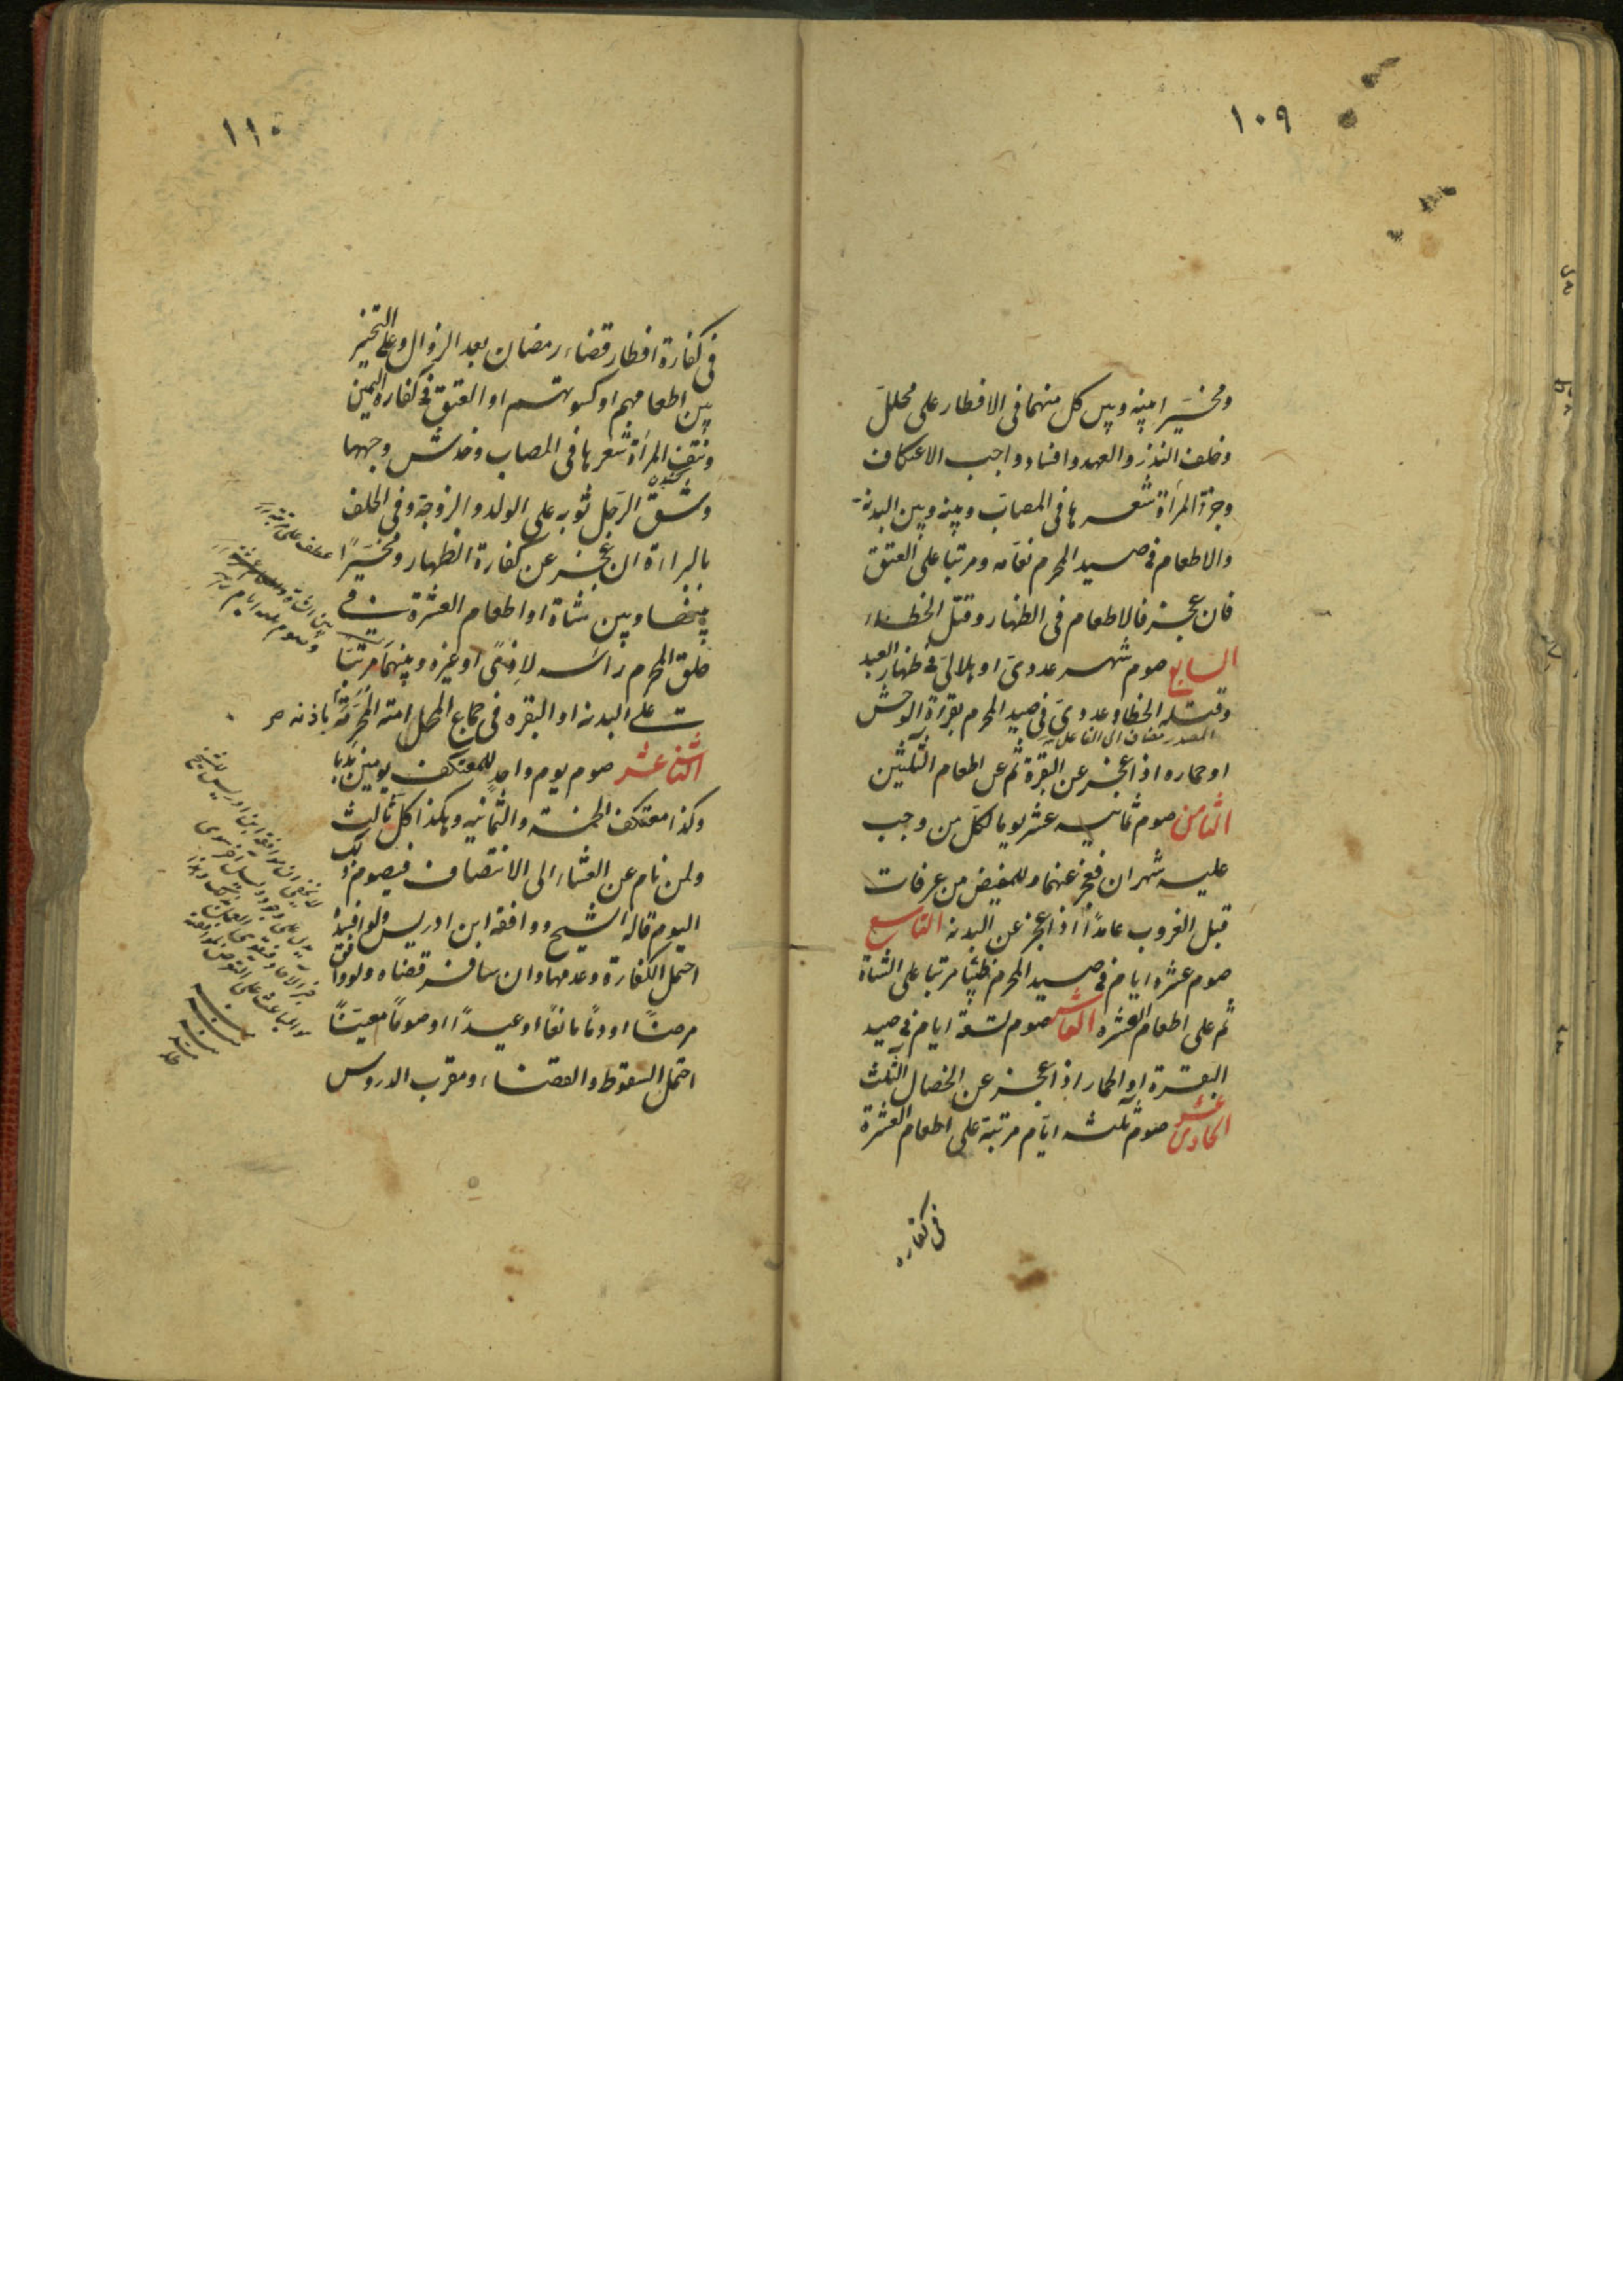 ١٠٩
ومخيرا بينه وبين كل منهما فى الافطار على محلل
وخلف النذر والعهد وافساد واجب الاعتكاف
وجز المرأة شعرها فى المصاب وبينه وبين البدنة
والاطعام فى صيد المحرم نعامه ومرتبا على العتق
فان عجز فالاطعام فى الظهار وقتل الخطاء
السابع صوم شهر عددى او هلالى فى ظهار العبد
وقتله الخطا وعددى فى صيد المحرم بقرة الوحش
المصدر مضاف الى الفاعل
او حماره اذا عجز عن البقرة ثم عن اطعام الثلثين
الثامن صوم ثمانية عشر يوما لكل من وجب
عليه شهران فعجز عنهما وللمفيض من عرفات
قبل الغروب عامدًا اذا عجز عن البدنه التاسع
صوم عشره ايام فى صيد المحرم ظبيًا مرتبا على الشاة
ثم على اطعام العشره العاشر صوم تسعة ايام فى صيد
البقرة او الحمار اذا عجز عن الخصال الثلث
الحادى عشر صوم ثلثه ايام مرتبة على اطعام العشرة
فى كفاره
١١٠
فى كفارة افطار قضاء رمضان بعد الزوال وعلى التخيير
بين اطعامهم او كسوتهم او العتق فى كفاره اليمين
ونتف المرأة شعرها فى المصاب وخدش وجهها
وشق الرجل ثوبه على الولد والزوجة وفى الحلف
بالبراءة ان عجز عن كفارة الظهار ومخيرًا
بينها وبين شاة او اطعام العشرة فى
حلق المحرم رأسه لاذًى او غيره وبينهما مرتبًا
على البدنه او البقره فى جماع المحل امته المحرمة باذنه
الثانى عشر صوم يوم واحدٍ للمعتكف يومين ندبا
وكذا معتكف الخمسة والثمانيه وهكذا كل ثالث
ولمن نام عن العشاء الى الانتصاف فيصوم ذلك
اليوم قاله الشيخ ووافقه ابن ادريس ولو افسده
احتمل الكفارة وعدمها وان سافر قضاه ولو وافق
مرضًا او دمًا مانعًا او عيدًا او صومًا معينًا
احتمل السقوط والقضاء ومقرب الدروس
لا يخفى ان موافقه ابن ادريس للشيخ